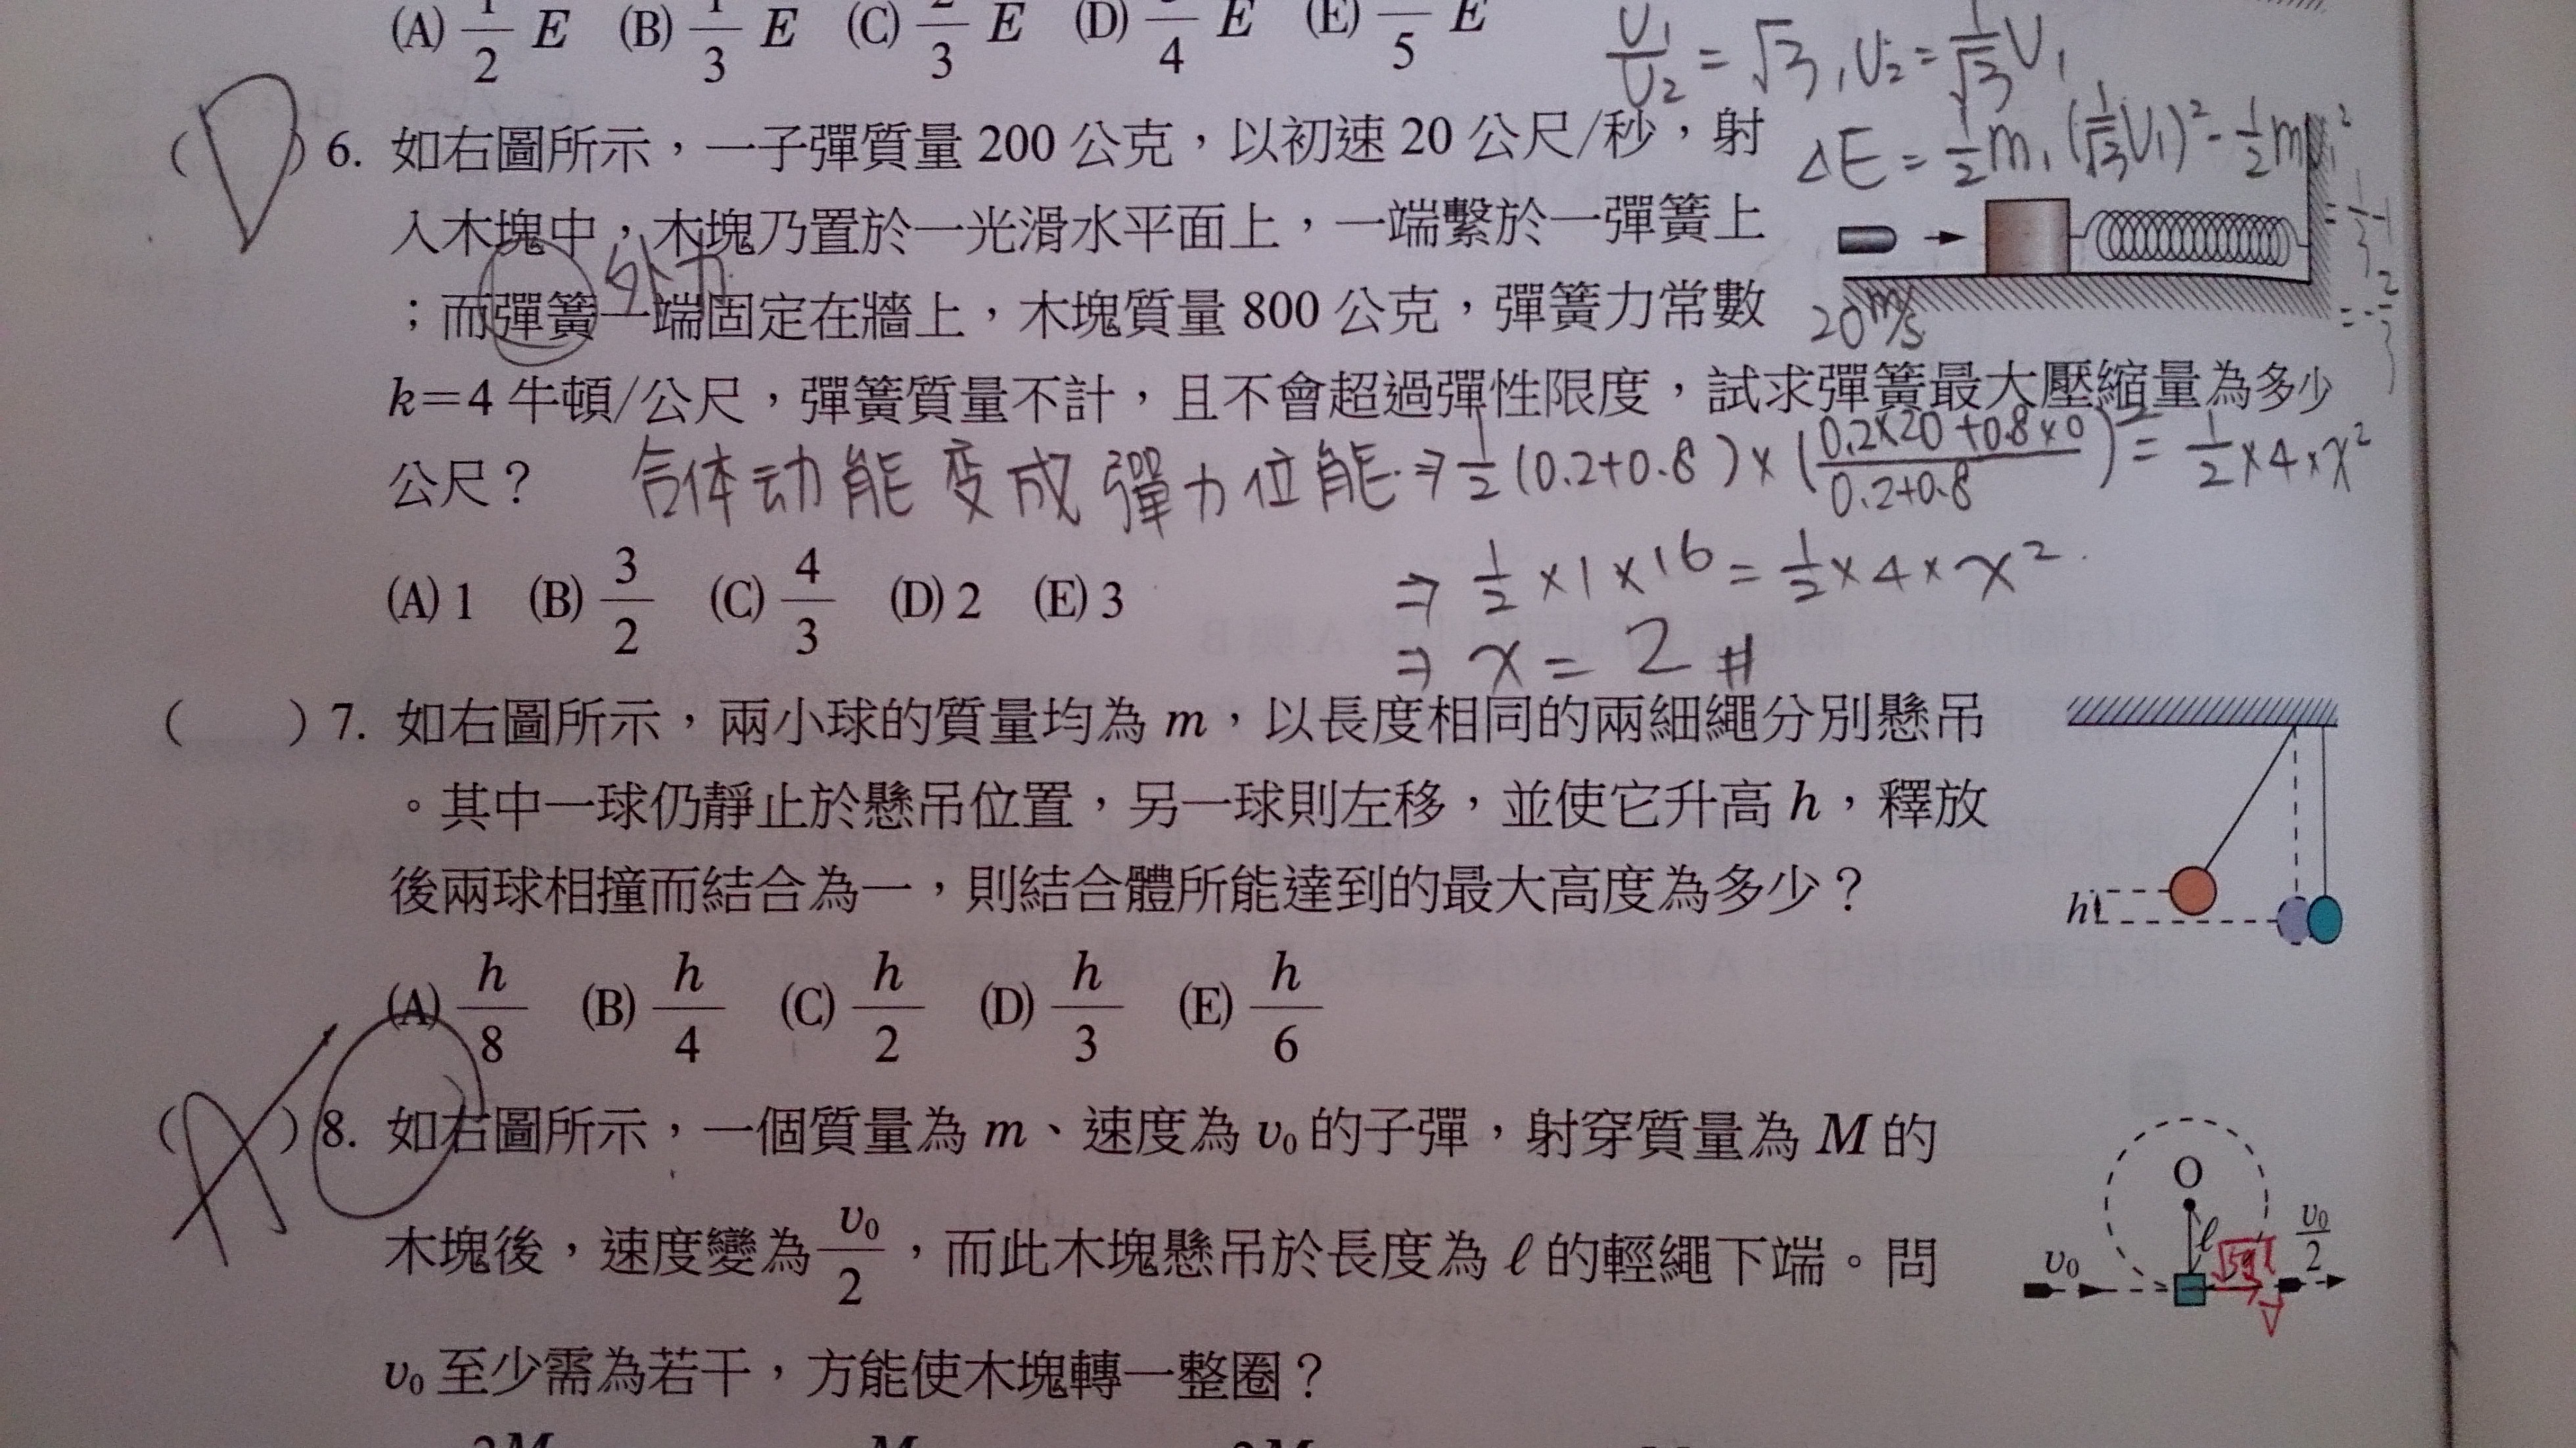 (A) 1/2 E (B) 1/3 E (C) 2/3 E (D) /4 E (E) /5 E
U₁/U₂ = √3, U₂ = 1/√3 U₁
(D) 6. 如右圖所示，一子彈質量 200 公克，以初速 20 公尺/秒，射
ΔE = 1/2 m₁ (1/√3 U₁)² - 1/2 m
= 1/3 - 1
= -2/3
入木塊中，木塊乃置於一光滑水平面上，一端繫於一彈簧上
外力
；而彈簧一端固定在牆上，木塊質量 800 公克，彈簧力常數
20 m/s
k＝4 牛頓/公尺，彈簧質量不計，且不會超過彈性限度，試求彈簧最大壓縮量為多少
公尺？
合体动能变成彈力位能 ⇒ 1/2 (0.2+0.8) × ((0.2×20+0.8×0)/(0.2+0.8))² = 1/2 × 4 × x²
⇒ 1/2 × 1 × 16 = 1/2 × 4 × x²
(A) 1 (B) 3/2 (C) 4/3 (D) 2 (E) 3
⇒ x = 2 #
( ) 7. 如右圖所示，兩小球的質量均為 m，以長度相同的兩細繩分別懸吊
。其中一球仍靜止於懸吊位置，另一球則左移，並使它升高 h，釋放
後兩球相撞而結合為一，則結合體所能達到的最大高度為多少？
h
(A) h/8 (B) h/4 (C) h/2 (D) h/3 (E) h/6
(A) 8. 如右圖所示，一個質量為 m、速度為 v₀ 的子彈，射穿質量為 M 的
木塊後，速度變為 v₀/2，而此木塊懸吊於長度為 ℓ 的輕繩下端。問
v₀ 至少需為若干，方能使木塊轉一整圈？
O
ℓ
v₀
√5gℓ
V
v₀/2